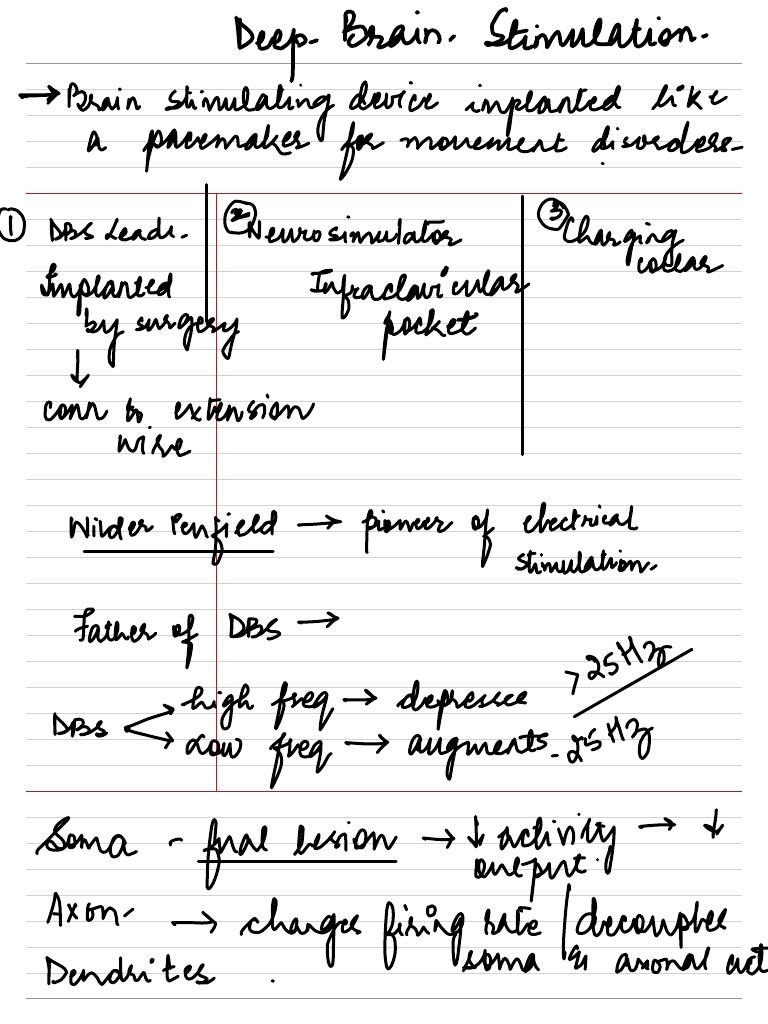 Deep Brain Stimulation.
→ Brain stimulating device implanted like
a pacemaker for movement disorders
① DBS Leads.
Implanted
by surgery
↓
conn to extension
wire
② Neurosimulator
Infraclavicular
pocket
③ Charging
collar
Wilder Penfield → pioneer of electrical
stimulation.
Father of DBS →
DBS
high freq → depresses > 25 Hz
Low freq → augments - 25 Hz
Soma - → ↓ activity → ↓
output.
Axon - → changes firing rate / decouples
Dendrites. soma & axonal act